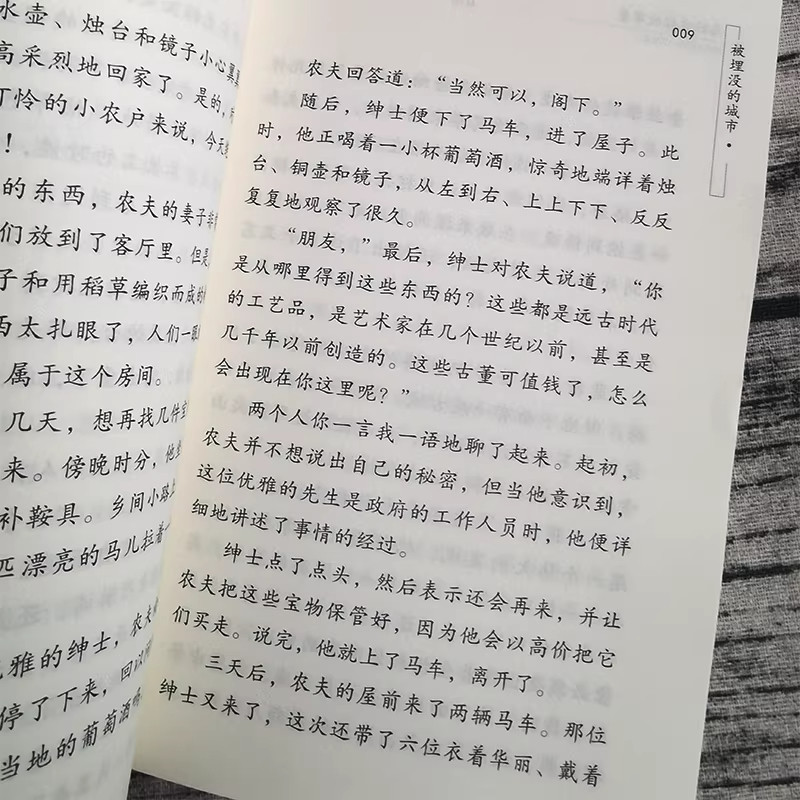 水壶、烛台和镜子小心翼翼
高采烈地回家了。是的,
怜的小农户来说,今天
!
的东西,农夫的妻子非
们放到了客厅里。但是
子和用稻草编织而成的
太扎眼了,人们一眼
属于这个房间。
几天,想再找几件宝
来。傍晚时分,他坐
补鞍具。乡间小路上
匹漂亮的马儿拉着
雅的绅士,农夫
停了下来,回以
当地的葡萄酒
009
被埋没的城市·
农夫回答道:“当然可以,阁下。”
随后,绅士便下了马车,进了屋子。此
时,他正喝着一小杯葡萄酒,惊奇地端详着烛
台、铜壶和镜子,从左到右、上上下下、反反
复复地观察了很久。
“朋友,”最后,绅士对农夫说道,“你
是从哪里得到这些东西的?这些都是远古时代
的工艺品,是艺术家在几个世纪以前,甚至是
几千年以前创造的。这些古董可值钱了,怎么
会出现在你这里呢?”
两个人你一言我一语地聊了起来。起初,
农夫并不想说出自己的秘密,但当他意识到,
这位优雅的先生是政府的工作人员时,他便详
细地讲述了事情的经过。
绅士点了点头,然后表示还会再来,并让
农夫把这些宝物保管好,因为他会以高价把它
们买走。说完,他就上了马车,离开了。
三天后,农夫的屋前来了两辆马车。那位
绅士又来了,这次还带了六位衣着华丽、戴着